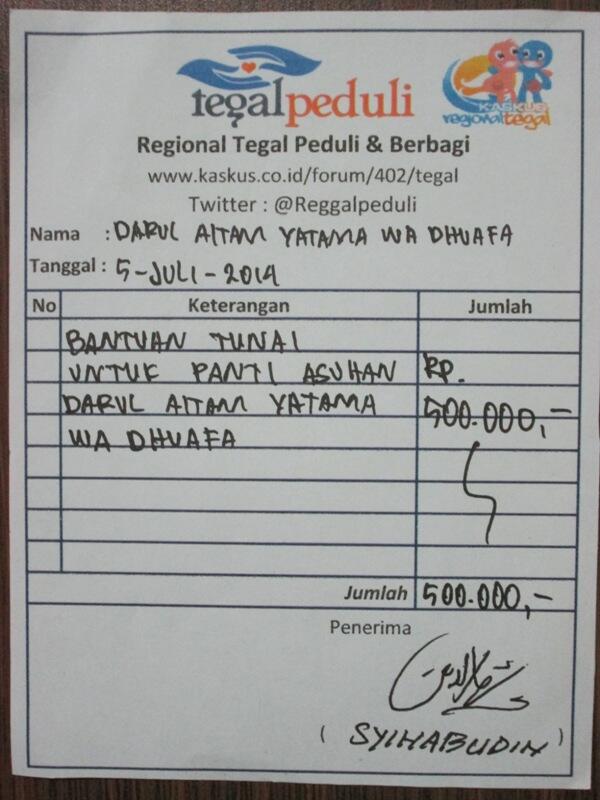 tegalpeduli
KASKUS
regionaltegal
Regional Tegal Peduli & Berbagi
www.kaskus.co.id/forum/402/tegal
Twitter : @Reggalpeduli
Nama : DARUL AITAM YATAMA WA DHUAFA
Tanggal : 5-JULI-2014
No Keterangan Jumlah
BANTUAN TUNAI
UNTUK PANTI ASUHAN RP.
DARUL AITAM YATAMA 500.000,-
WA DHUAFA
Jumlah 500.000,-
Penerima
( SYIHABUDIN )